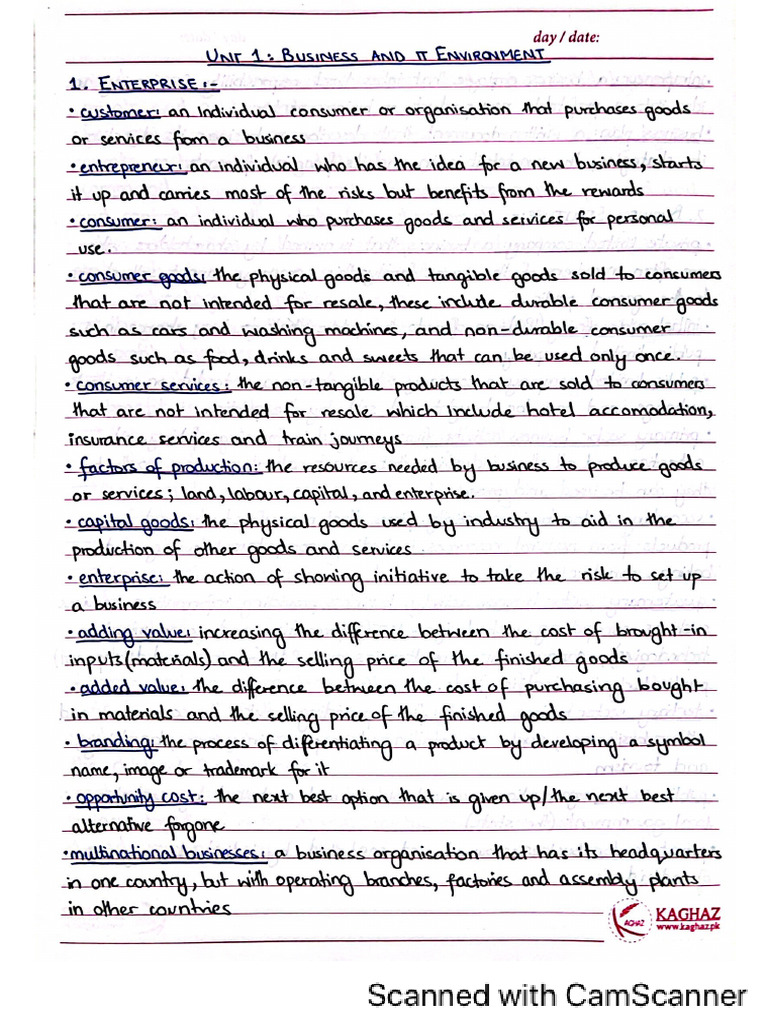 day / date:
UNIT 1: BUSINESS AND IT ENVIRONMENT
1. ENTERPRISE:-
• customer: an individual consumer or organisation that purchases goods
or services from a business
• entrepreneur: an individual who has the idea for a new business, starts
it up and carries most of the risks but benefits from the rewards
• consumer: an individual who purchases goods and services for personal
use.
• consumer goods: the physical goods and tangible goods sold to consumers
that are not intended for resale, these include durable consumer goods
such as cars and washing machines, and non-durable consumer
goods such as food, drinks and sweets that can be used only once.
• consumer services: the non-tangible products that are sold to consumers
that are not intended for resale which include hotel accomodation,
insurance services and train journeys
• factors of production: the resources needed by business to produce goods
or services; land, labour, capital, and enterprise.
• capital goods: the physical goods used by industry to aid in the
production of other goods and services
• enterprise: the action of showing initiative to take the risk to set up
a business
• adding value: increasing the difference between the cost of brought-in
inputs(materials) and the selling price of the finished goods
• added value: the difference between the cost of purchasing bought
in materials and the selling price of the finished goods
• branding: the process of differentiating a product by developing a symbol
name, image or trademark for it
• opportunity cost: the next best option that is given up/the next best
alternative forgone
• multinational businesses: a business organisation that has its headquarters
in one country, but with operating branches, factories and assembly plants
in other countries
KAGHAZ
www.kaghaz.pk
Scanned with CamScanner